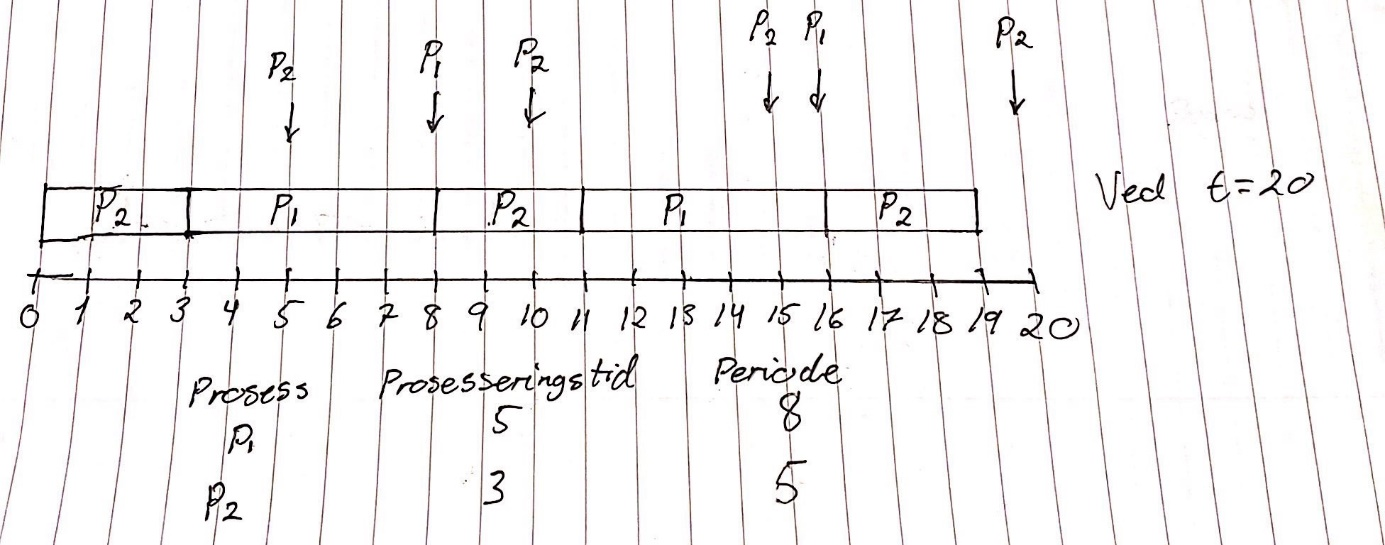 P₂ P₁ P₂ P₂ P₁ P₂
P₂ P₁ P₂ P₁ P₂ Ved t=20
0 1 2 3 4 5 6 7 8 9 10 11 12 13 14 15 16 17 18 19 20
Prosess Prosesseringstid Periode
P₁ 5 8
P₂ 3 5